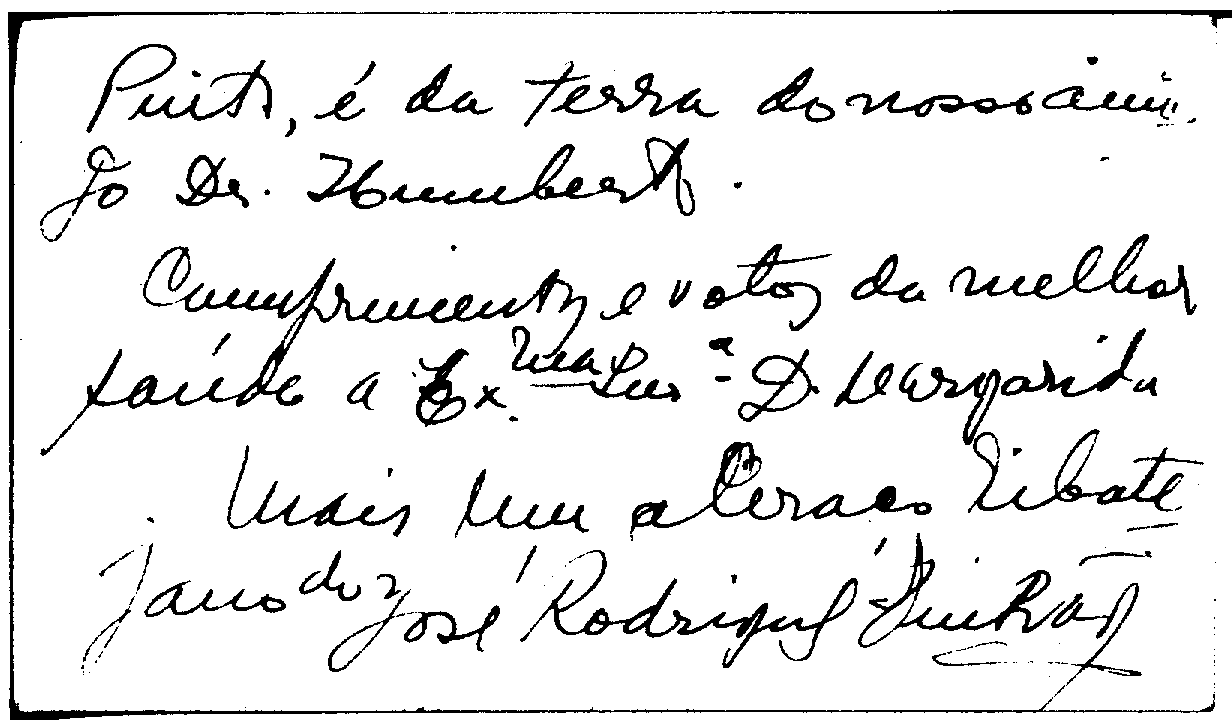 Pinto, é da terra do nosso ami-
go Dr. Humberto.
Cumprimentos e votos da melhor
saúde a Ex.ma Sra. D. Margarida
Mais um abraço Ribate
jano do José Rodrigues